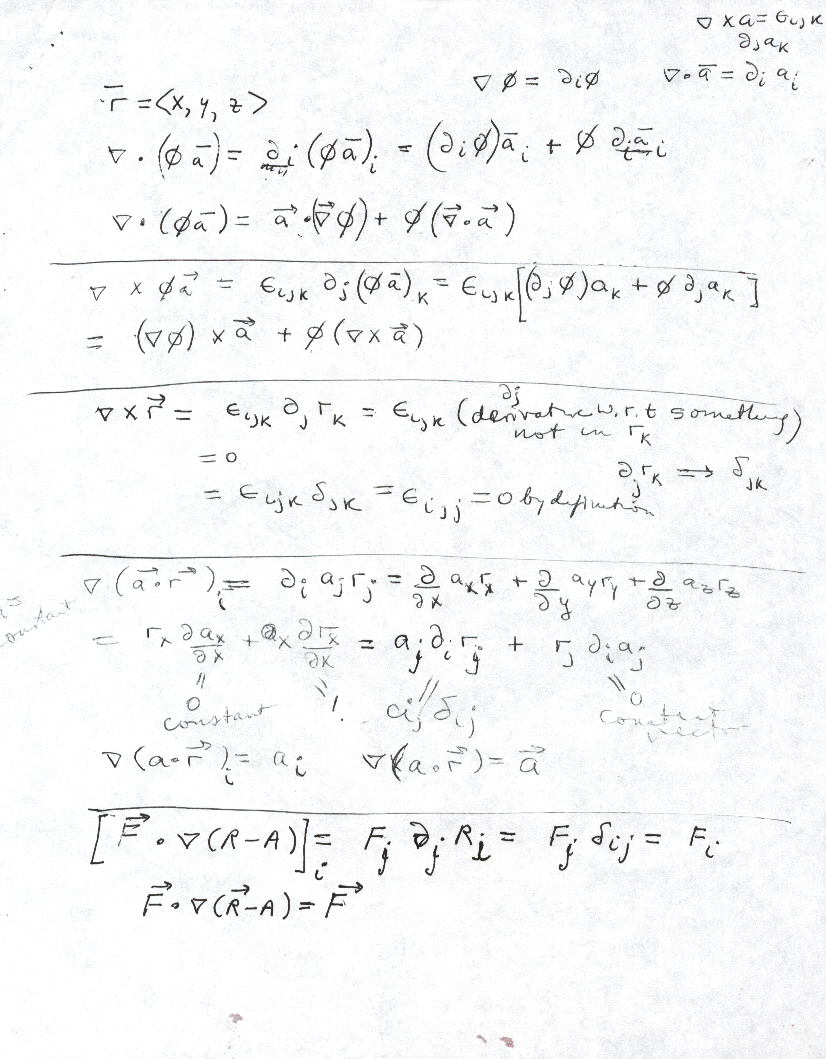 ∇ × a = ϵijk
∂j ak
∇φ = ∂iφ    ∇·a̅ = ∂i ai
r̅ = <x, y, z>
∇ · (φ a̅) = ∂i (φ a̅)i = (∂i φ) a̅i + φ ∂i a̅i
∇ · (φa̅) = a⃗ · (∇⃗φ) + φ(∇⃗·a⃗)
∇ × φa⃗ = ϵijk ∂j (φa̅)k = ϵijk [(∂jφ)ak + φ ∂j ak]
= (∇φ) × a⃗ + φ(∇ × a⃗)
∇ × r⃗ = ϵijk ∂j rk = ϵijk (derivative w.r.t something)
∂j
not in rk
= 0    ∂j rk ⟹ δjk
= ϵijk δjk = ϵijj = 0 by definition
∇(a⃗·r⃗)i = ∂i aj rj = ∂/∂x ax rx + ∂/∂y ay ry + ∂/∂z az rz
constant
= rx ∂ax/∂x + ax ∂rx/∂x = aj ∂i rj + rj ∂i aj
= 0    = 1    aj δij    = 0
constant    constant vector
∇(a·r⃗)i = ai    ∇(a·r⃗) = a⃗
[F⃗ · ∇(R-A)]i = Fj ∂j Ri = Fj δij = Fi
F⃗ · ∇(R⃗-A) = F⃗